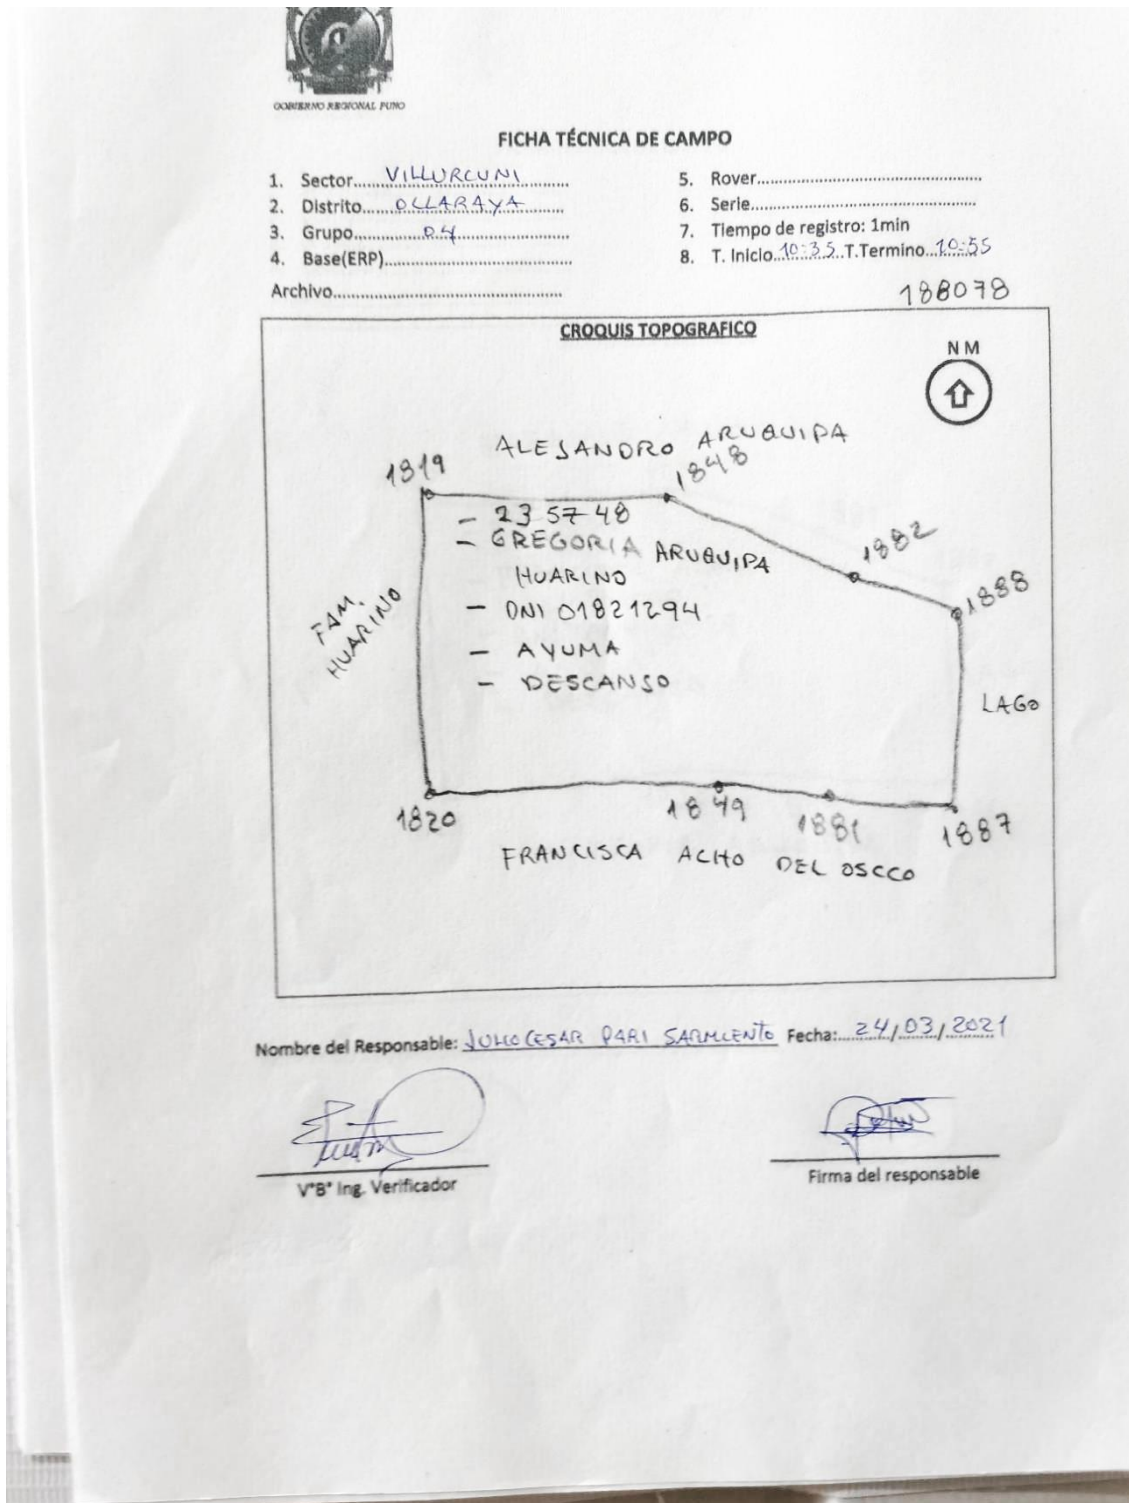 GOBIERNO REGIONAL PUNO
FICHA TÉCNICA DE CAMPO
1. Sector....VILLURCUNI....
2. Distrito....OLLARAYA....
3. Grupo....04....
4. Base(ERP)....
Archivo....
5. Rover....
6. Serie....
7. Tiempo de registro: 1min
8. T. Inicio..10:35..T.Termino..10:55
188078
CROQUIS TOPOGRAFICO
N M
ALEJANDRO ARUQUIPA
1819
1848
- 235748
- GREGORIA ARUQUIPA
HUARINO
- DNI 01821294
- AYUMA
- DESCANSO
1882
1888
FAM.
HUARINO
LAGO
1820
1849
1881
1887
FRANCISCA ACHO DEL OSCCO
Nombre del Responsable: JULIO CESAR PARI SARMIENTO Fecha:....24/03/2021
V°B° Ing. Verificador
Firma del responsable